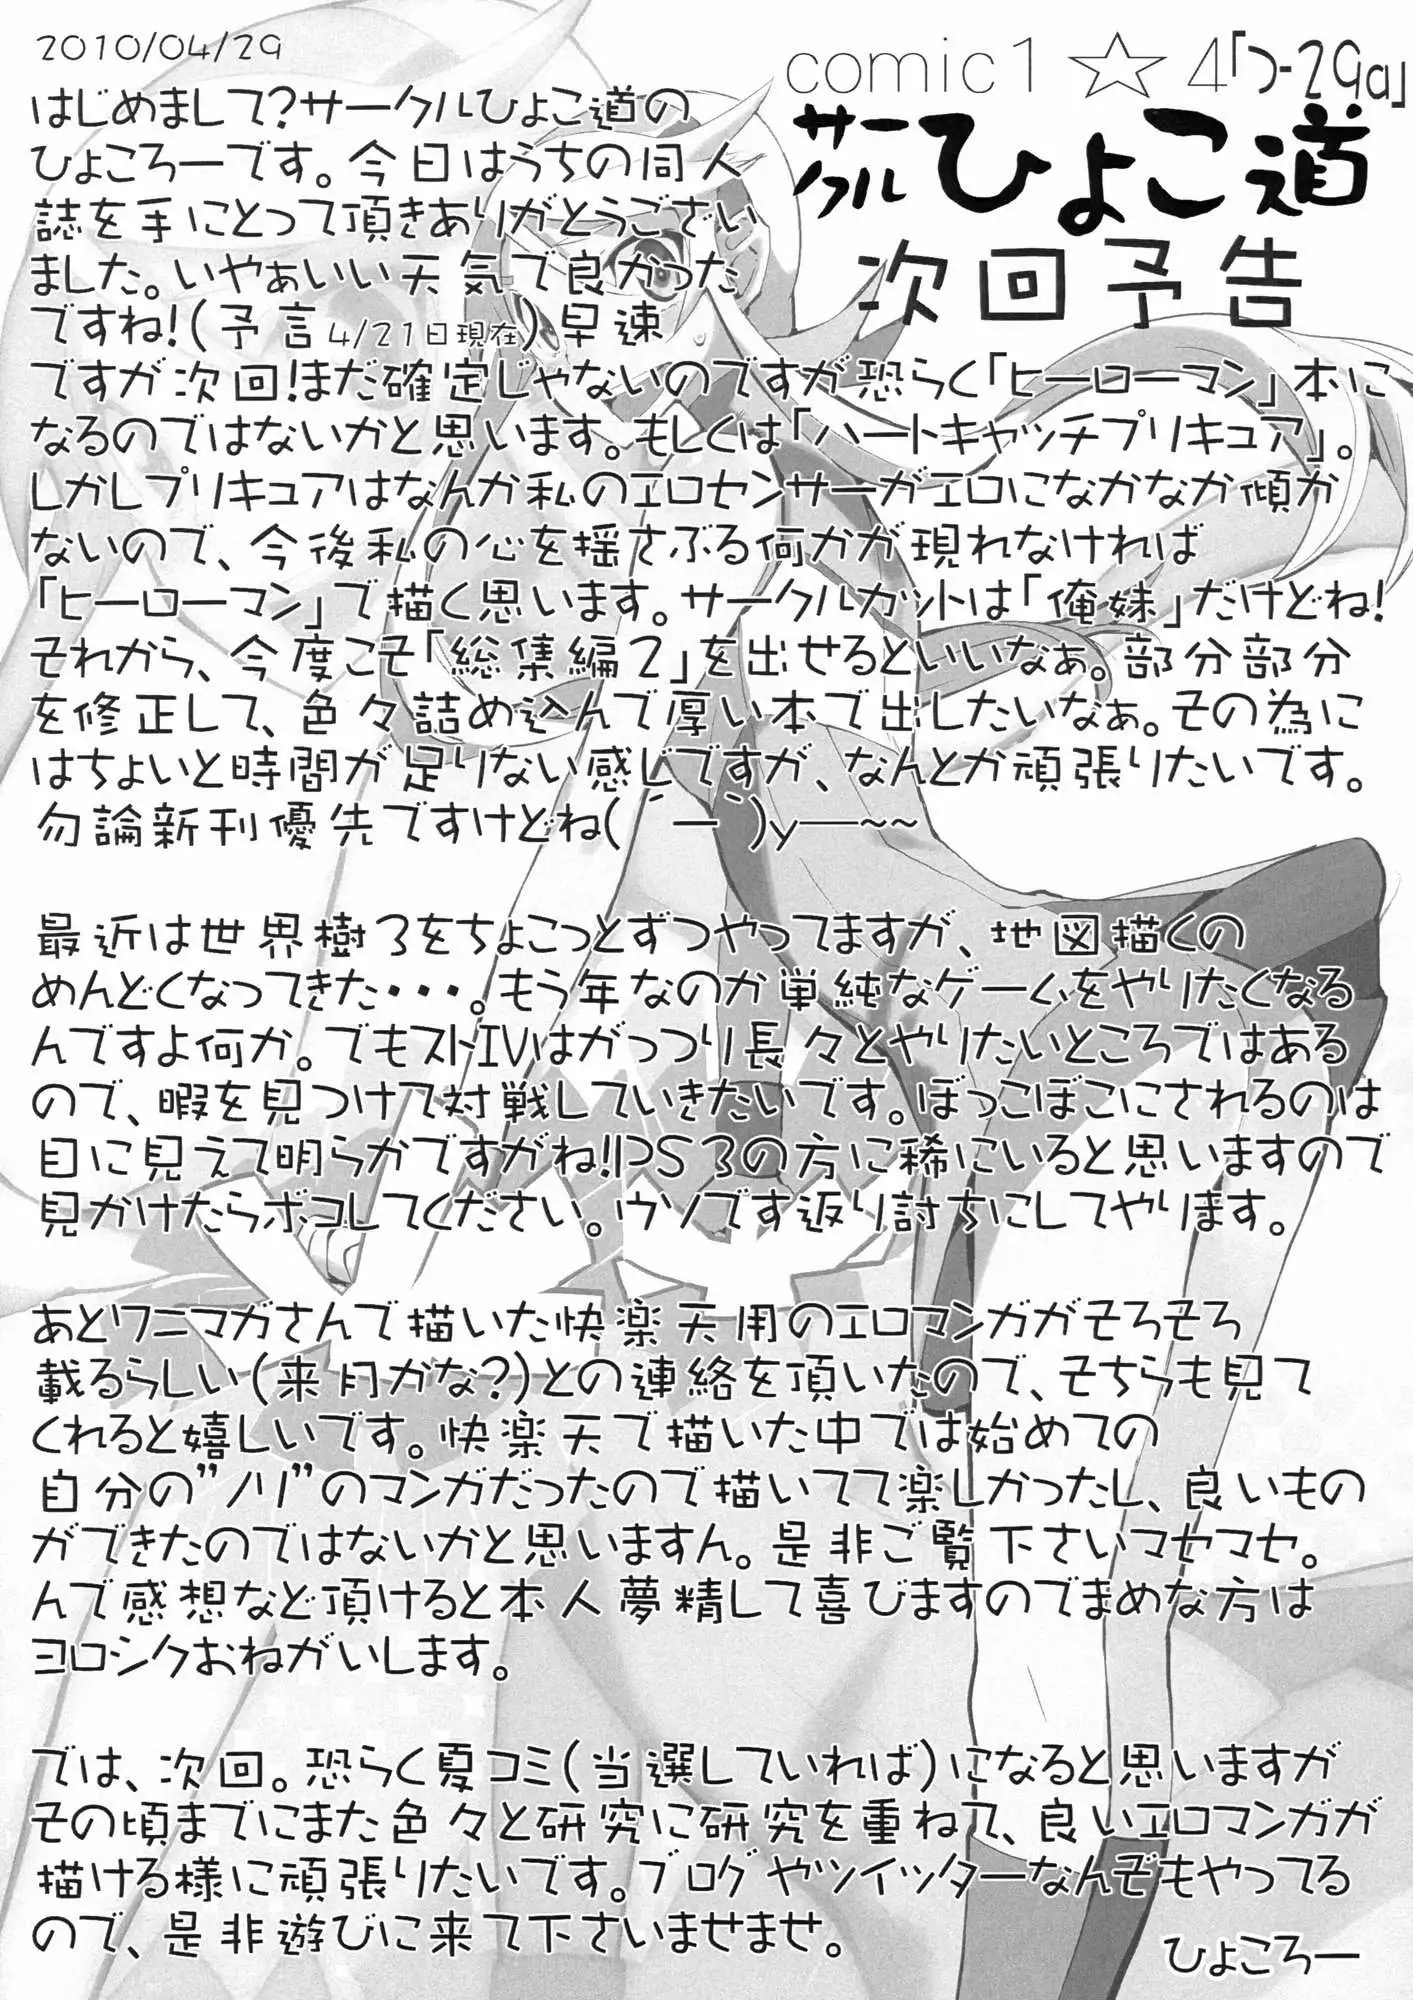 2010/04/29
comic1☆4「つ-29a」
サークルひよこ道
次回予告
はじめまして?サークルひよこ道の
ひよころーです。今日はうちの同人
誌を手にとって頂きありがとうござい
ました。いやぁいい天気で良かった
ですね!(予言4/21日現在)早速
ですが次回!まだ確定じゃないのですが恐らく「ヒーローマン」本に
なるのではないかと思います。もしくは「ハートキャッチプリキュア」。
しかしプリキュアはなんか私のエロセンサーがエロになかなか傾か
ないので、今後私の心を揺さぶる何かが現れなければ
「ヒーローマン」で描く思います。サークルカットは「俺妹」だけどね!
それから、今度こそ「総集編2」を出せるといいなぁ。部分部分
を修正して、色々詰め込んで厚い本で出したいなぁ。その為に
はちょいと時間が足りない感じですが、なんとか頑張りたいです。
勿論新刊優先ですけどね(´ー`)y―~~
最近は世界樹3をちょこっとずつやってますが、地図描くの
めんどくなってきた・・・。もう年なのか単純なゲームをやりたくなる
んですよ何か。でもストIVはがっつり長々とやりたいところではある
ので、暇を見つけて対戦していきたいです。ぼっこぼこにされるのは
目に見えて明らかですがね!PS3の方に稀にいると思いますので
見かけたらボコしてください。ウソです返り討ちにしてやります。
あとワニマガさんで描いた快楽天用のエロマンガがそろそろ
載るらしい(来月かな?)との連絡を頂いたので、そちらも見て
くれると嬉しいです。快楽天で描いた中では始めての
自分の"ノリ"のマンガだったので描いてて楽しかったし、良いもの
ができたのではないかと思いますん。是非ご覧下さいマセマセ。
んで感想など頂けると本人夢精して喜びますのでまめな方は
ヨロシクおねがいします。
では、次回。恐らく夏コミ(当選していれば)になると思いますが
その頃までにまた色々と研究に研究を重ねて、良いエロマンガが
描ける様に頑張りたいです。ブログやツイッターなんぞもやってる
ので、是非遊びに来て下さいませませ。
ひよころー